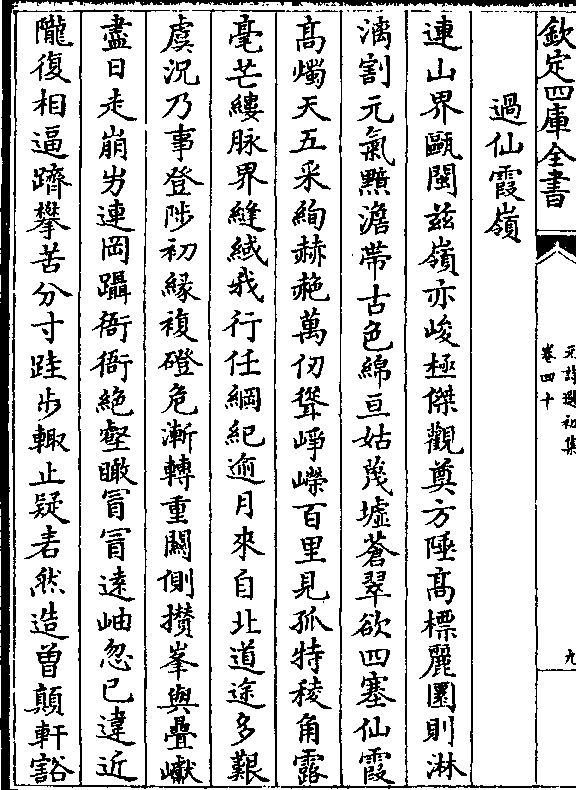 欽定四庫全書
卷四十
九
過仙霞嶺
連山界甌閩兹嶺亦峻極傑觀奠方陲高標麗圜則淋
漓割元氣黯澹帶古色綿亘姑蔑墟蒼翠欲四塞仙霞
髙燭天五采絢赫赩萬仞聳崢嶸百里見孤特稜角露
毫芒縷脉界縫緎我行任綱紀逾月來自北道途多艱
虞況乃事登陟初緣複磴危漸轉重關側攢峯與疊巘
盡日走崩岃連岡躡衙衙絶壑瞰冥冥逺岫忽已違近
隴復相逼躋攀苦分寸跬步輙止疑砉然造曽顛軒豁